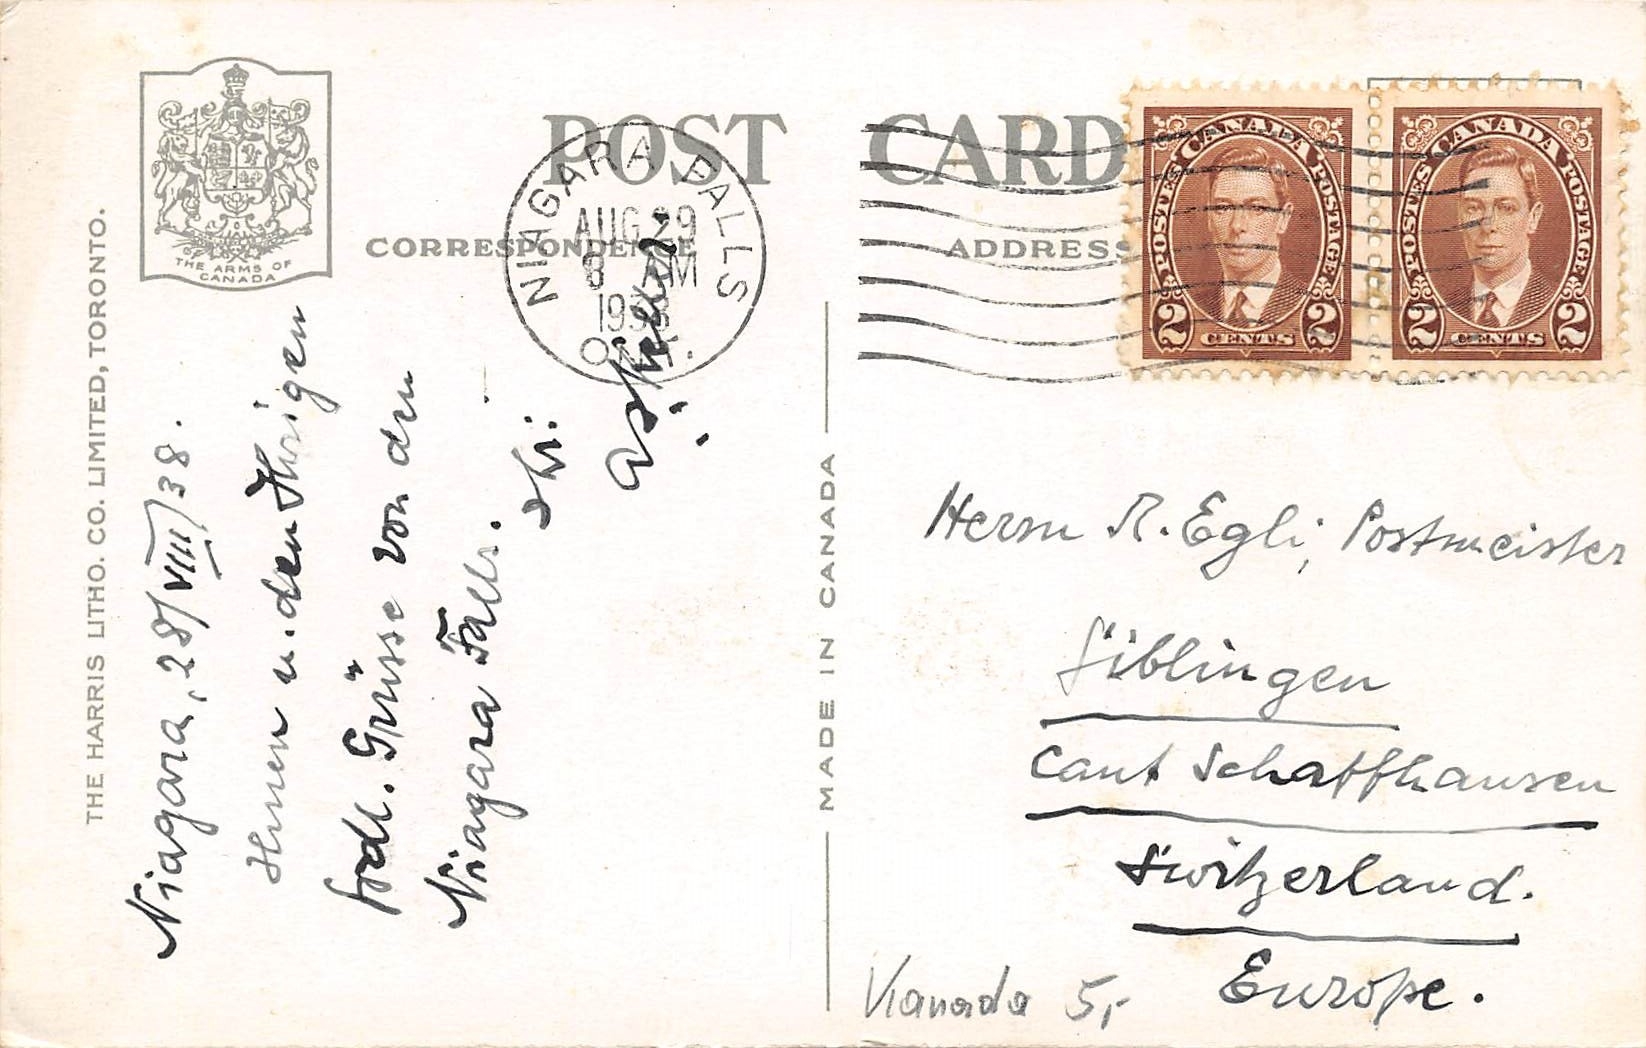 THE ARMS OF
CANADA
POST CARD
CORRESPONDENCE
ADDRESS
NIAGARA FALLS
AUG 29
8 AM
1938
ONT.
CANADA
POSTES POSTAGE
2 CENTS 2
CANADA
POSTES POSTAGE
2 CENTS 2
THE HARRIS LITHO. CO. LIMITED, TORONTO.
MADE IN CANADA
Niagara, 28/VIII/38.
Ihnen u. den Ihrigen
frdl. Grüsse von den
Niagara Falls.
Ihr:
Herrn R. Egli, Postmeister
Siblingen
Cant Schaffhausen
Switzerland.
Europe.
Kanada 5,-